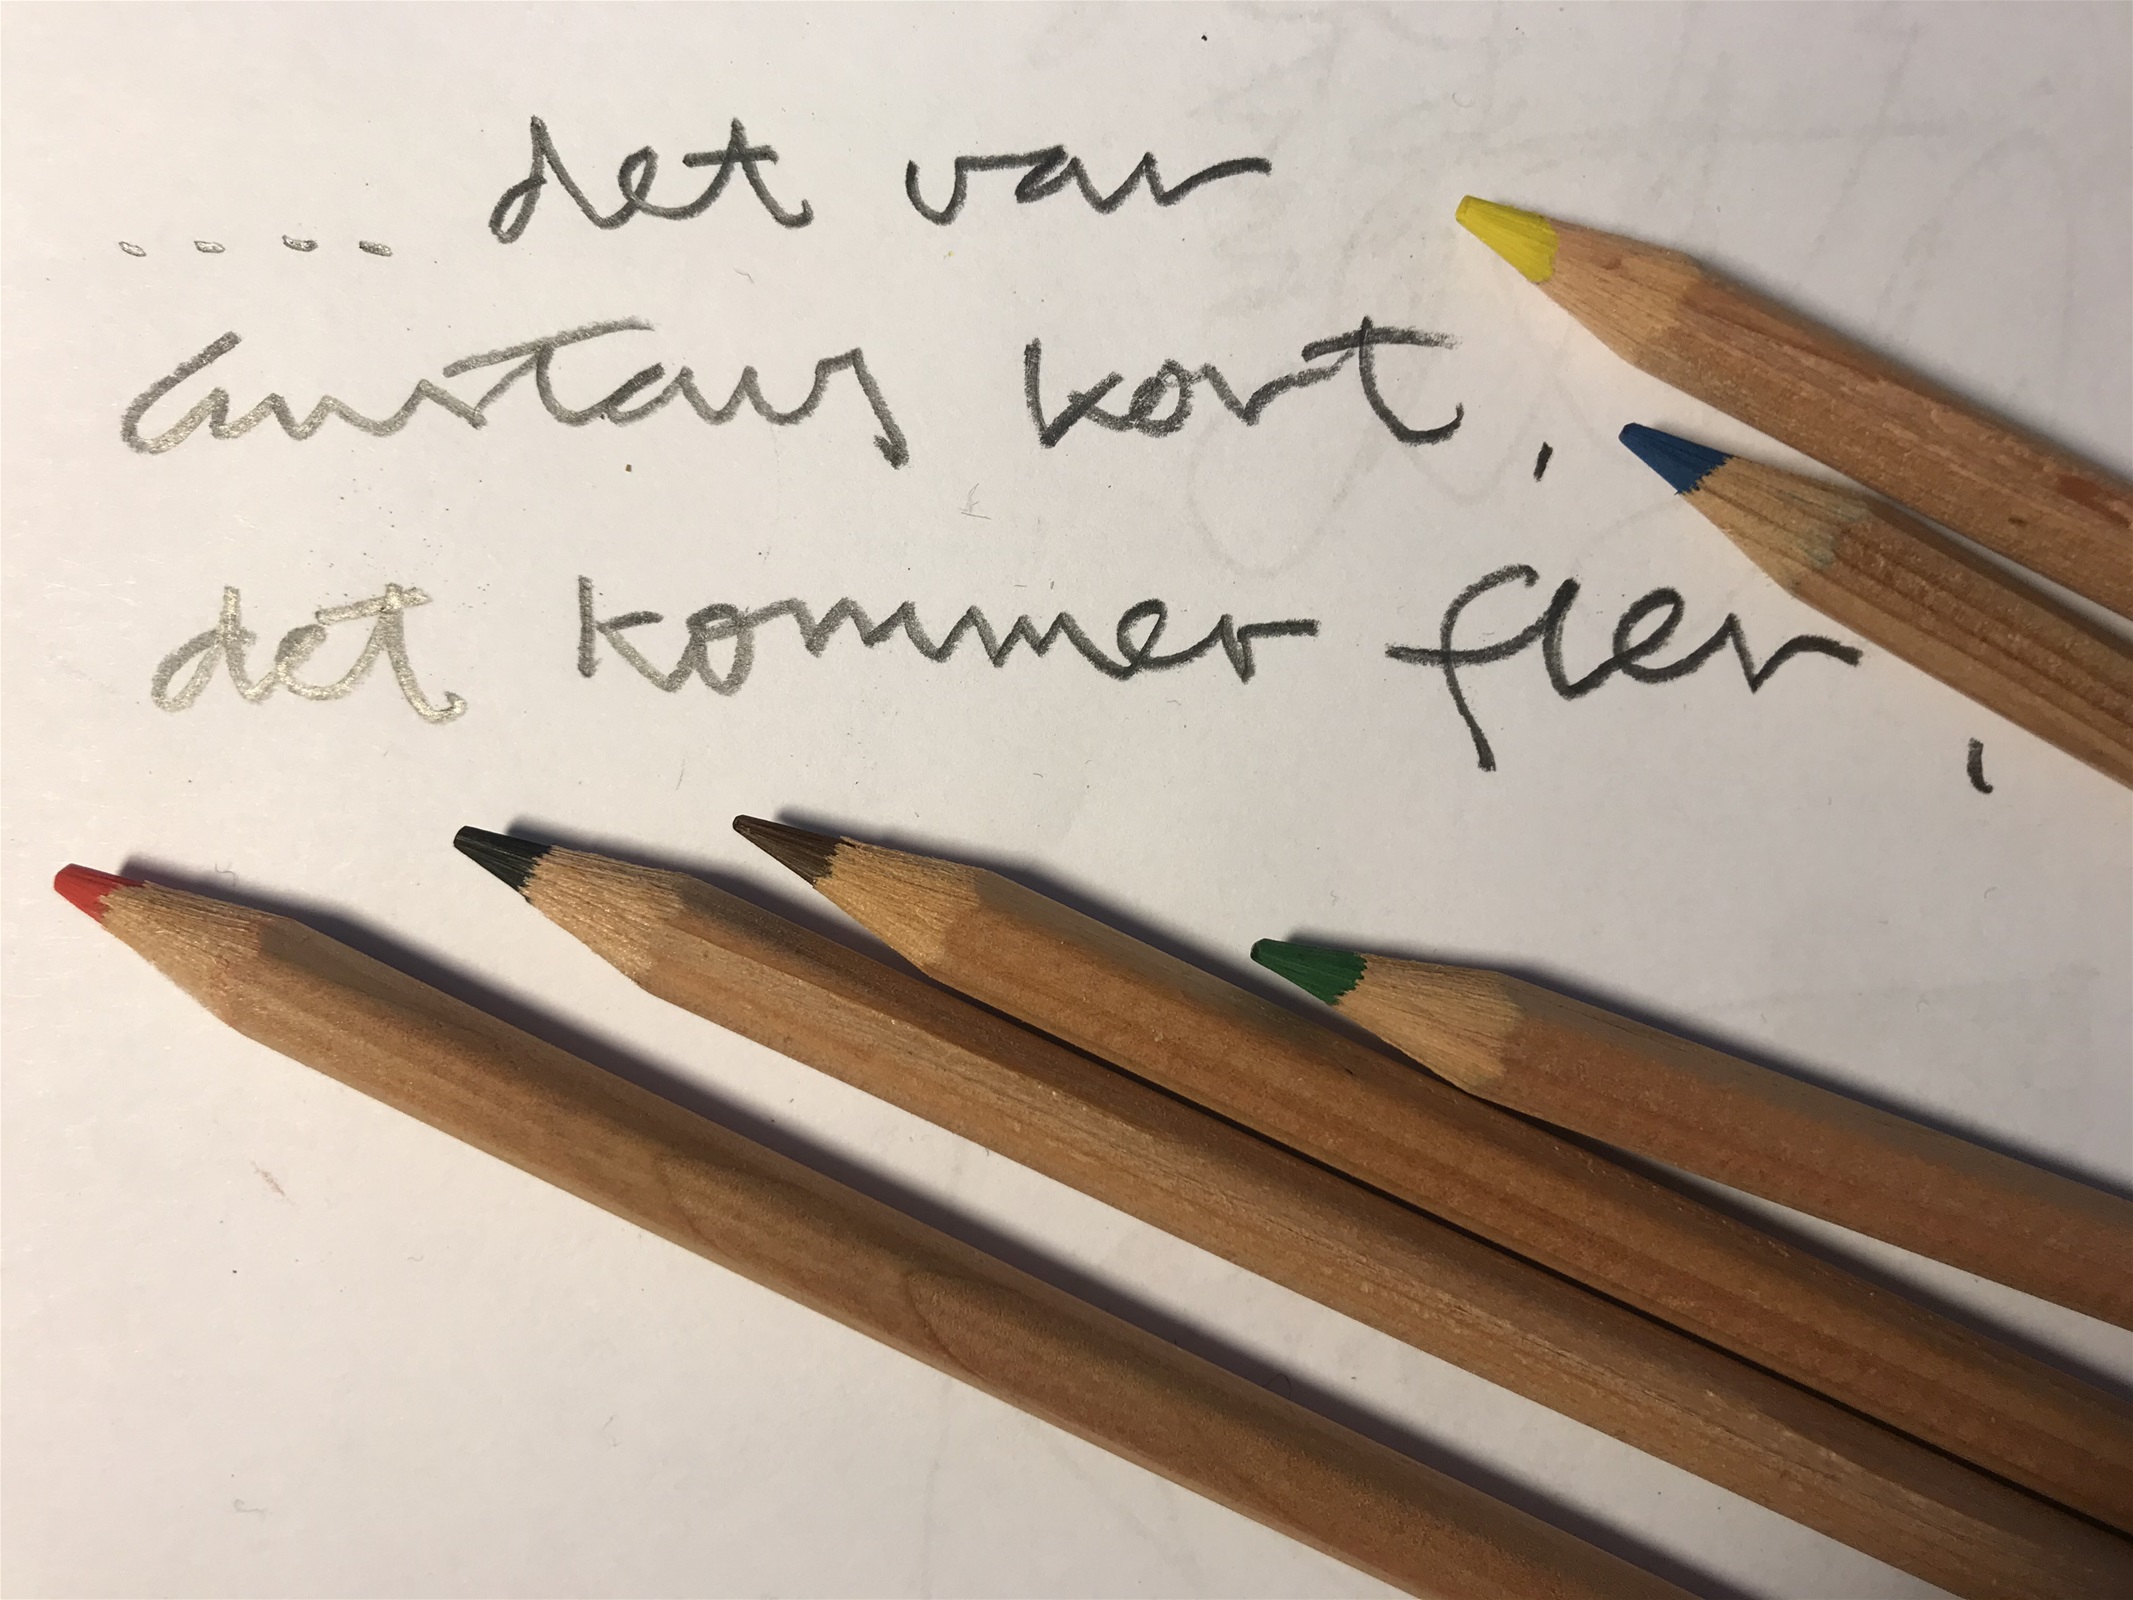 .... det var
Gustavs kort.
det kommer fler.